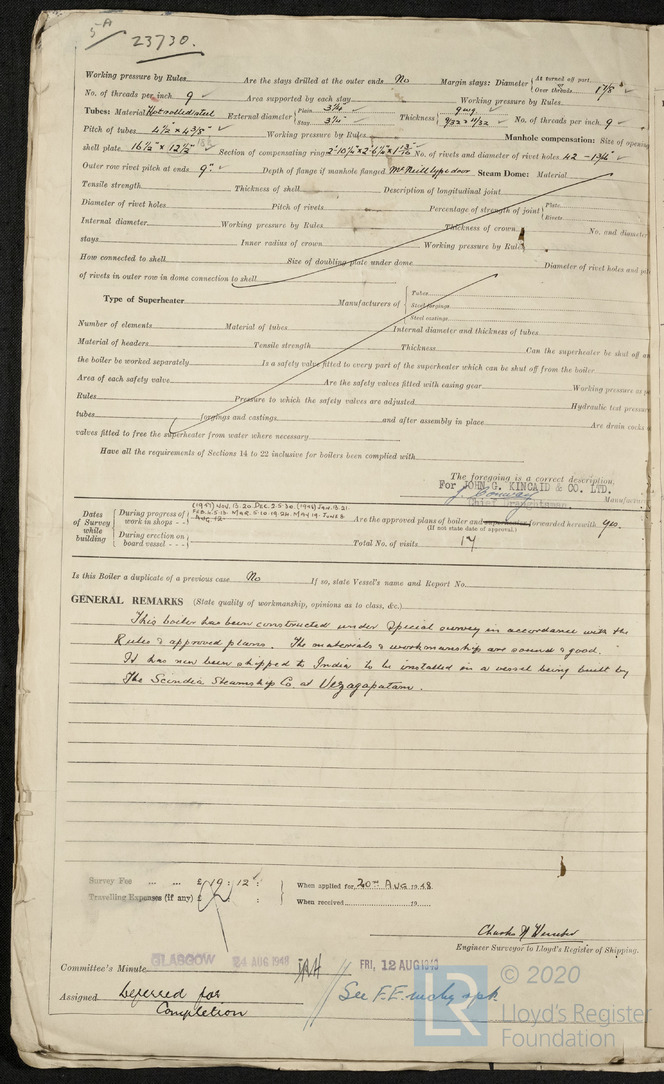 5-A
23730.
Working pressure by Rules Are the stays drilled at the outer ends No Margin stays: Diameter { At turned off part, Over threads 1 7/8" ✓
No. of threads per inch 9 ✓ Area supported by each stay Working pressure by Rules
Tubes: Material Hot rolled steel External diameter { Plain 3 1/4" ✓ Stay 3 1/4" ✓ Thickness { 9 wg ✓ 9/32 & 11/32 ✓ No. of threads per inch 9 ✓
Pitch of tubes 4 1/2" x 4 3/8" ✓ Working pressure by Rules Manhole compensation: Size of opening
shell plate 16 1/2" x 12 1/2" ✓ Section of compensating ring No. of rivets and diameter of rivet holes 42 - 1 3/16" ✓
Outer row rivet pitch at ends 9" ✓ Depth of flange if manhole flanged McNeill type door Steam Dome: Material
Tensile strength Thickness of shell Description of longitudinal joint
Diameter of rivet holes Pitch of rivets Percentage of strength of joint { Plate Rivets
Internal diameter Working pressure by Rules Thickness of crown No. and diameter
stays Inner radius of crown Working pressure by Rules
How connected to shell Size of doubling plate under dome Diameter of rivet holes and pit
of rivets in outer row in dome connection to shell
Type of Superheater Manufacturers of { Tubes Steel forgings Steel castings
Number of elements Material of tubes Internal diameter and thickness of tubes
Material of headers Tensile strength Thickness Can the superheater be shut off an
the boiler be worked separately Is a safety valve fitted to every part of the superheater which can be shut off from the boiler
Area of each safety valve Are the safety valves fitted with easing gear Working pressure as p
Rules Pressure to which the safety valves are adjusted Hydraulic test pressure
tubes forgings and castings and after assembly in place Are drain cocks
valves fitted to free the superheater from water where necessary
Have all the requirements of Sections 14 to 22 inclusive for boilers been complied with
The foregoing is a correct description,
For JOHN G. KINCAID & CO. LTD.
Manufactur
Chief Draughtsman
Dates of Survey while building { During progress of work in shops - - { (1947) NOV. 13. 20. DEC. 2. 5. 30. (1948) JAN. 13. 21. FEB. 4. 5. 13. MAR. 5. 10. 19. 24. MAY 19. JUNE 3 AUG 12
Are the approved plans of boiler and superheater forwarded herewith yes.
(If not state date of approval.)
During erection on board vessel - - - { Total No. of visits 17
Is this Boiler a duplicate of a previous case No If so, state Vessel's name and Report No.
GENERAL REMARKS (State quality of workmanship, opinions as to class, &c.)
This boiler has been constructed under Special survey in accordance with the
Rules & approved plans. The materials & workmanship are sound & good.
It has now been shipped to India to be installed in a vessel being built by
The Scindia Steamship Co. at Vezagapatam.
Survey Fee ... ... £ 19 : 12 : } When applied for, 20th AUG 1948.
Travelling Expenses (if any) £ : : } When received, 19
Engineer Surveyor to Lloyd's Register of Shipping.
Committee's Minute GLASGOW 24 AUG 1948 FRI, 12 AUG 1949
Assigned Deferred for
Completion
© 2020
LR
Lloyd's Register
Foundation